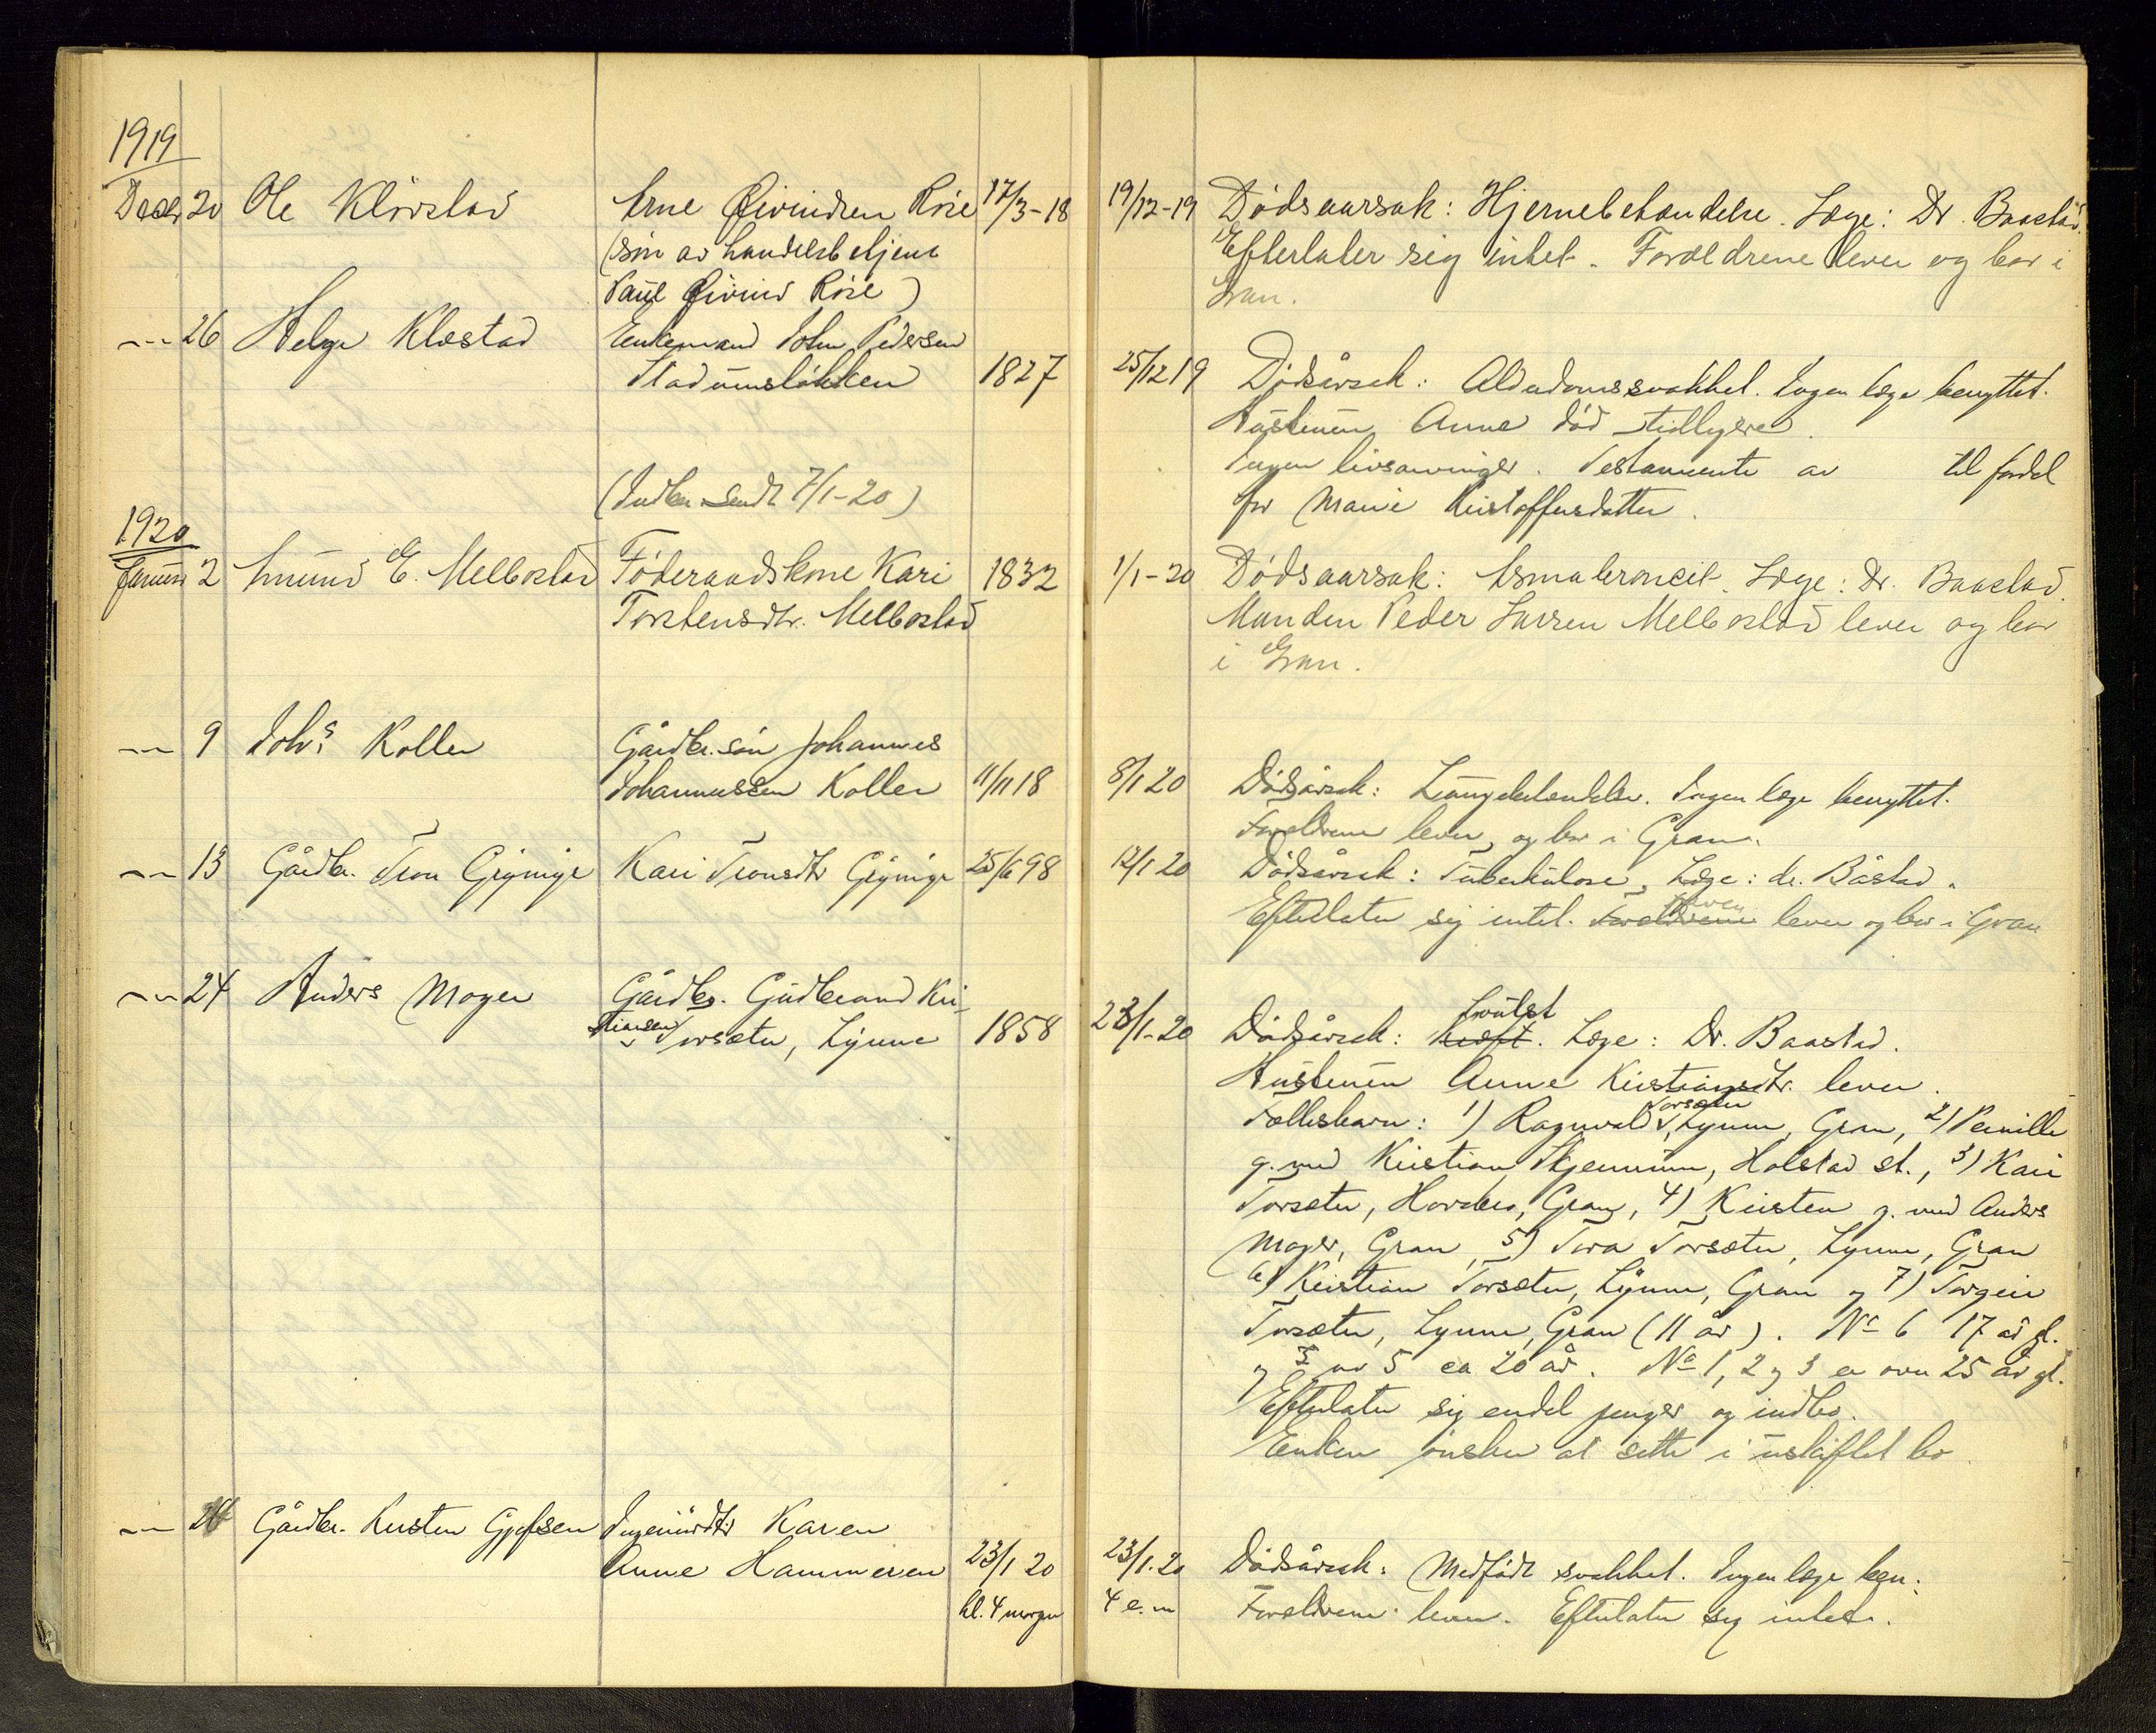 1919
Decbr 20 Ole Klövstad Arne Øivindsen Röise 17/3-18 19/12-19 Dödsaarsak: Hjernebetændelse. Læge: Dr. Baastad.
(sön av handelsbetjent Efterlater sig intet. Forældrene lever og bor i
Paul Øivind Röise) Gran.
-"- 26 Helge Klæstad Enkemand John Pedersen
Stadumsløkken 1827 25/12 19 Dödsårsak: Alderdomssvakhet. Ingen læge benyttet.
Hustruen Anne död tidligere.
Ingen livsarvinger. Testamente av til fordel
(Indber. sendt 7/1-20) for Marie Kristoffersdatter.
1920
Januar 2 Amund E. Melbostad Föderaadskone Kari 1832 1/1-20 Dödsaarsak: Asmabroncit. Læge: Dr. Baastad.
Torstensdtr. Melbostad Manden Peder Larsen Melbostad lever og bor
i Gran.
-"- 9 Johs Koller Gårdbr.sön Johannes
Johannessen Koller 11/11 18 8/1 20 Dödsårsak: Lungebetændelse. Ingen læge benyttet.
Foreldrene lever, og bor i Gran.
-"- 13 Gårdbr. Tron Grymyr Kari Tronsdtr Grymyr 25/6 98 12/1 20 Dödsårsak: Tuberkulose, Læge: dr. Båstad.
Efterlater sig intet. Foreldrene lever og bor i Gran
-"- 24 Anders Moger Gårdbr. Gudbrand Kri-
stiansen Torsæter, Lynne 1858 23/1-20 Dödsårsak: kræft. Læge: Dr. Baastad.
Hustruen Anne Kristiansdtr. lever.
Fællesbarn: 1) Ragnvald Torsæter, Lynne, Gran, 2) Pernille
g. med Kristian Skjerumn, Holstad st., 3) Kari
Torsæter, Hovsbro, Gran, 4) Kirsten g. med Anders
Moger, Gran, 5) Tora Torsæter, Lynne, Gran
6) Kristian Torsæter, Lynne, Gran og 7) Torgeir
Torsæter, Lynne, Gran (11 år). No 6 17 år gl.
og nr 5 ca 20 år. No 1, 2 og 3 er over 25 år gl.
Efterlater sig endel penger og indbo.
Enken ønsker at sitte i uskiftet bo
-"- 26 Gårdbr. Kristen Gjefsen Ingeniördtr Karen
Anne Hammeren 23/1 20 23/1.20 Dödsårsak: Medfödt svakhet. Ingen læge ben.
kl. 4 morgen 4 e.m Foreldrene lever. Efterlater sig intet.